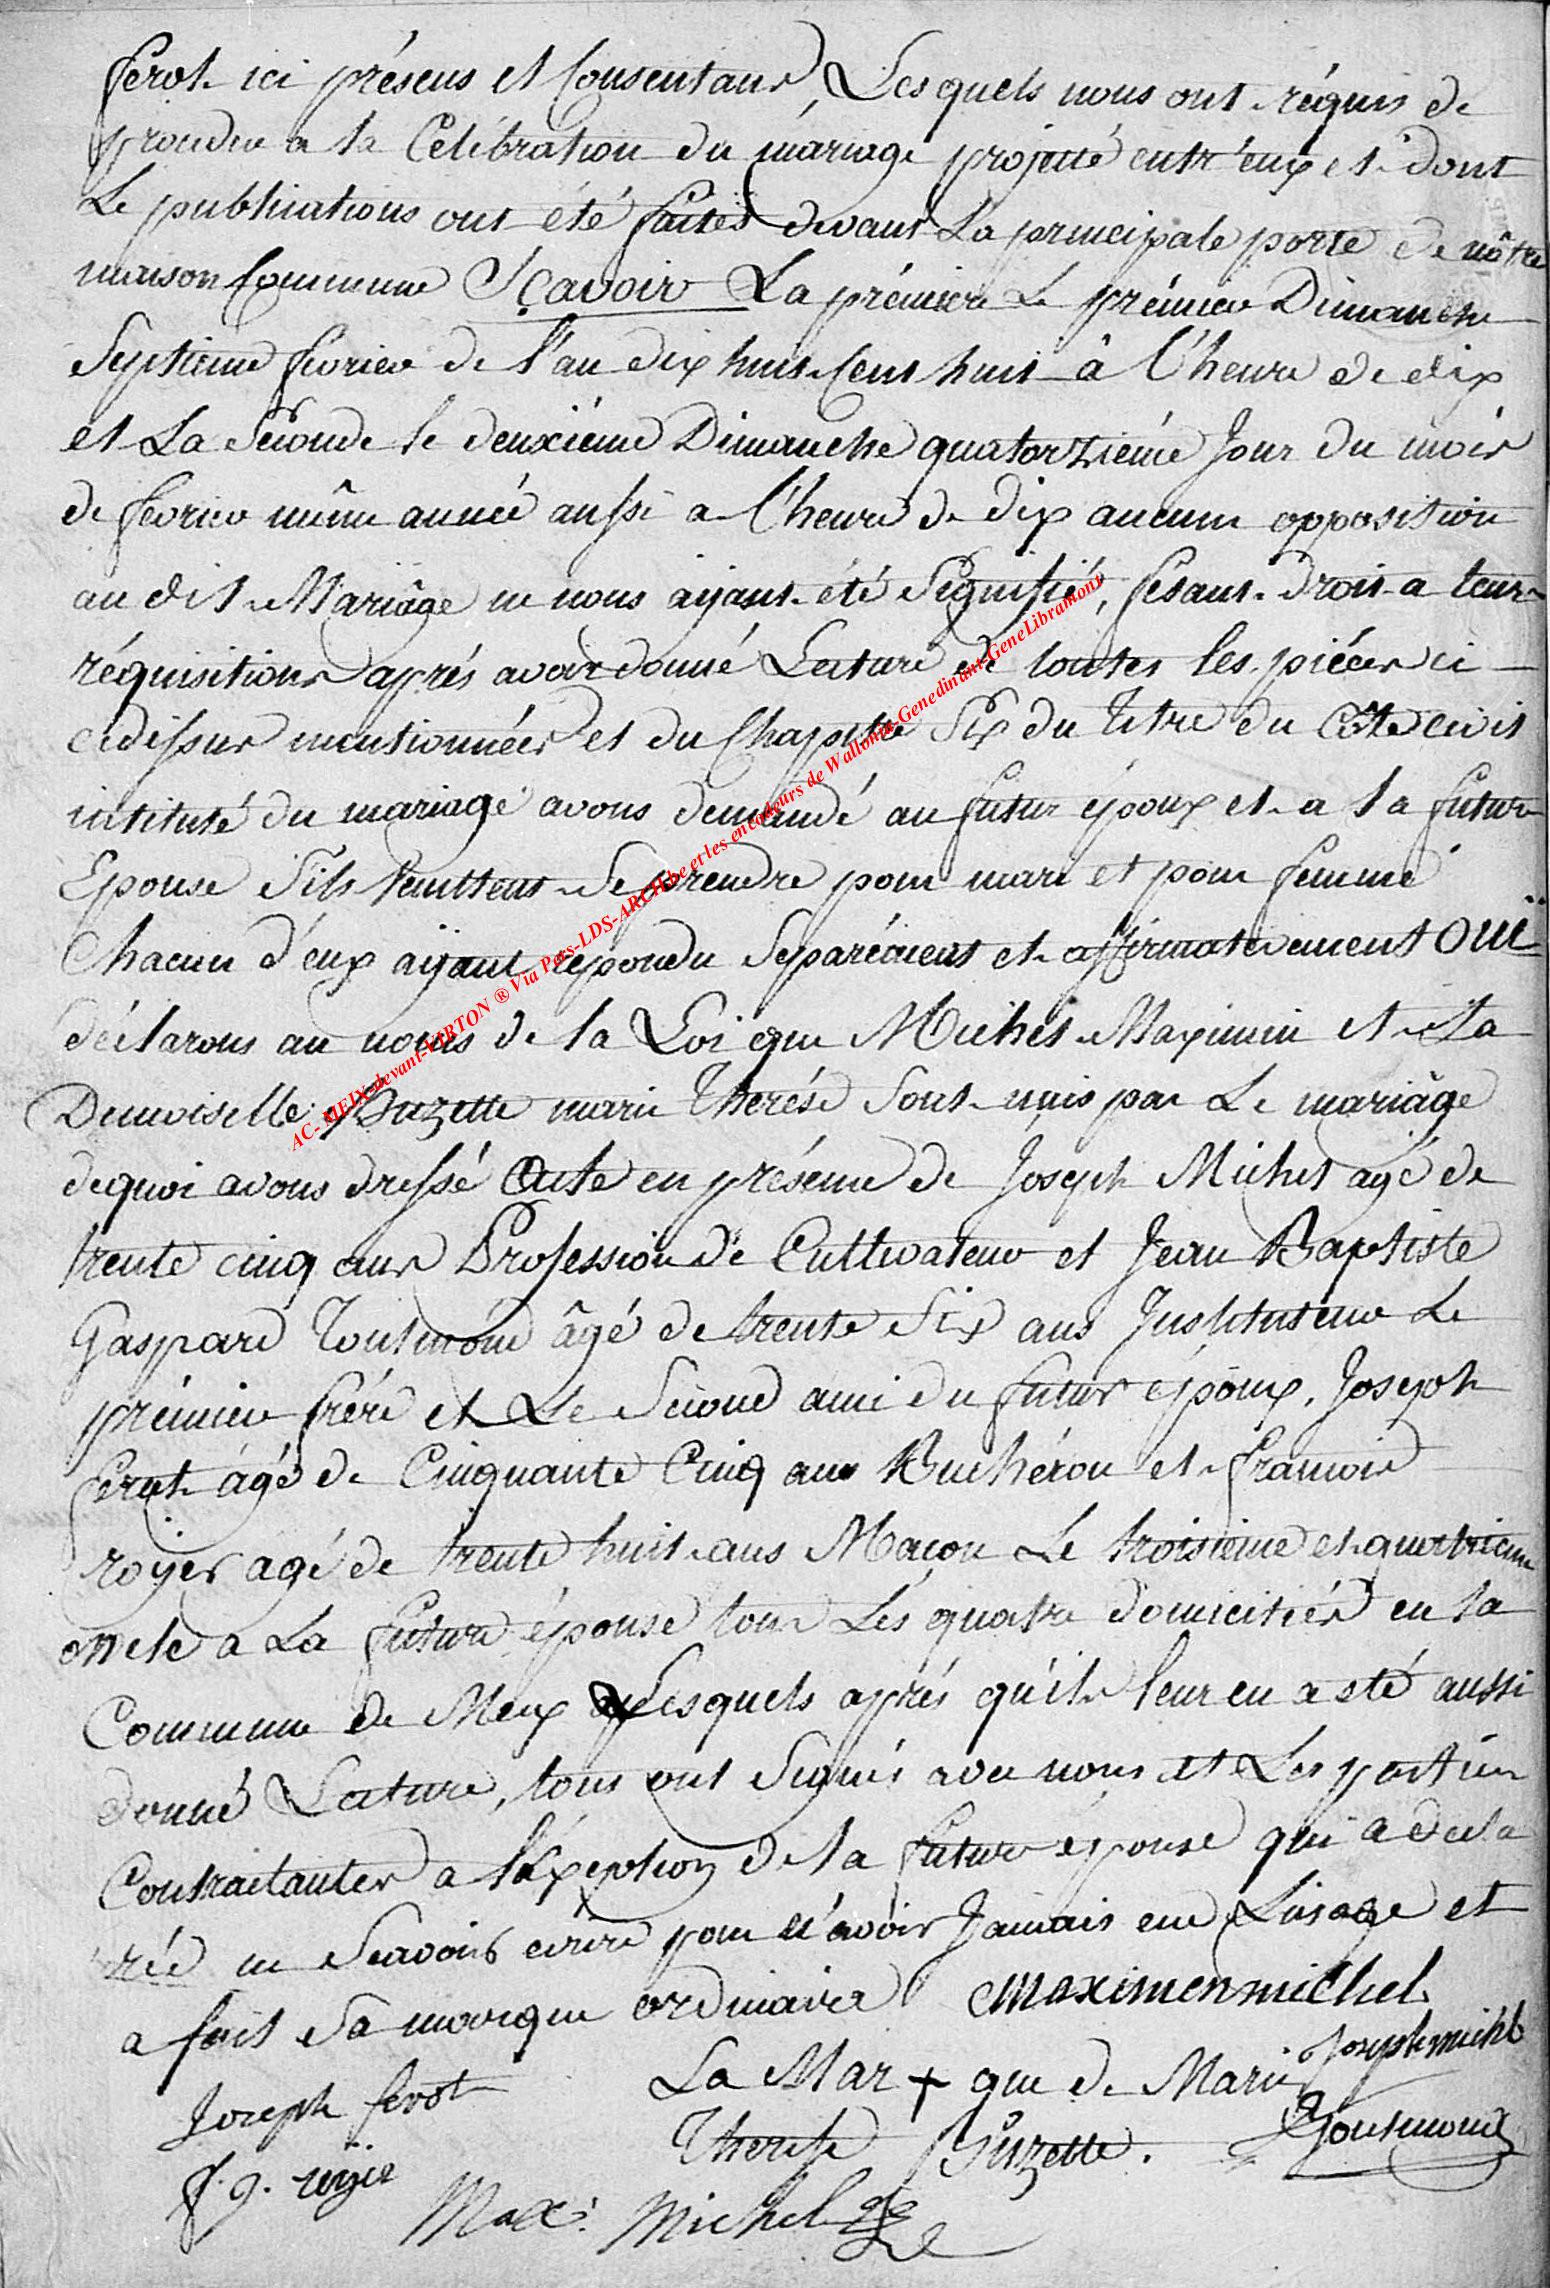 ferot ici présens et Consentans, Lesquels nous ont réquis de
proceder a la Célébration du mariage projetté entr'eux et dont
Le publications ont été faites devant La principale porte de nôtre
maison Commune Sçavoir La prémiere Le prémier Dimanche
Septieme fevrier de l'an dix huit Cent huit â l'heure de dix
et La Séconde le deuxiéme Dimanche quatorziéme Jour du mois
de fevrier même année aussi a l'heure de dix aucune opposition
au dit Mariâge ne nous aÿant été Signifié, fesant droit a leur
réquisitions aprés avoir donné Lecture de toutes les piéces ci
cidessus mentionnées et du Chapitre Six du Titre du Côde civil
intitulé du mariage avons demandé au futur époux et a la futur
Epouse s'ils veuillent Se prendre pour mari et pour femme
Chacun d'eux aÿant repondu Separément et affirmativement Ouï
déclarons au noms de la Loi que Michel Maximin et La
Demoiselle Buzette marie Therése Sont unis par Le mariâge
dequoi avons dressé acte en présence de Joseph Michel agé de
trente cinq ans Profession de Cultivateur et Jean Baptiste
Gaspard Toutmond âgé de trente Six ans Instituteur Le
prémier frére et Le Sécond ami du futur époux, Joseph
ferot âgé de Cinquante Cinq ans Buchéron et francois
royer agé de trente huit ans Maçon Le troisieme et quatrieme
oncle a La future épouse tous Lés quatre domiciliés en la
Commune de Meix Lesquels aprés qu'il leur en a eté aussi
donné Lecture, tous ont Signés avec nous et Les parties
Contractantes a l'éxception de la future épouse qui a decla
réé ne Scavoir ecrire pour n'avoir Jamais eue L'usage et
a fait Sa marque ordinaire maximen michel
Joseph michel
La Mar + que de Marie
Joseph ferot
Therese Buzette. Toutmond
f. g. royer
Max: Michel
AC- MEIX-devant-VIRTON ® Via Pers-LDS-ARCH.be et les encodeurs de Wallonia-Genedinant-GeneLibramont